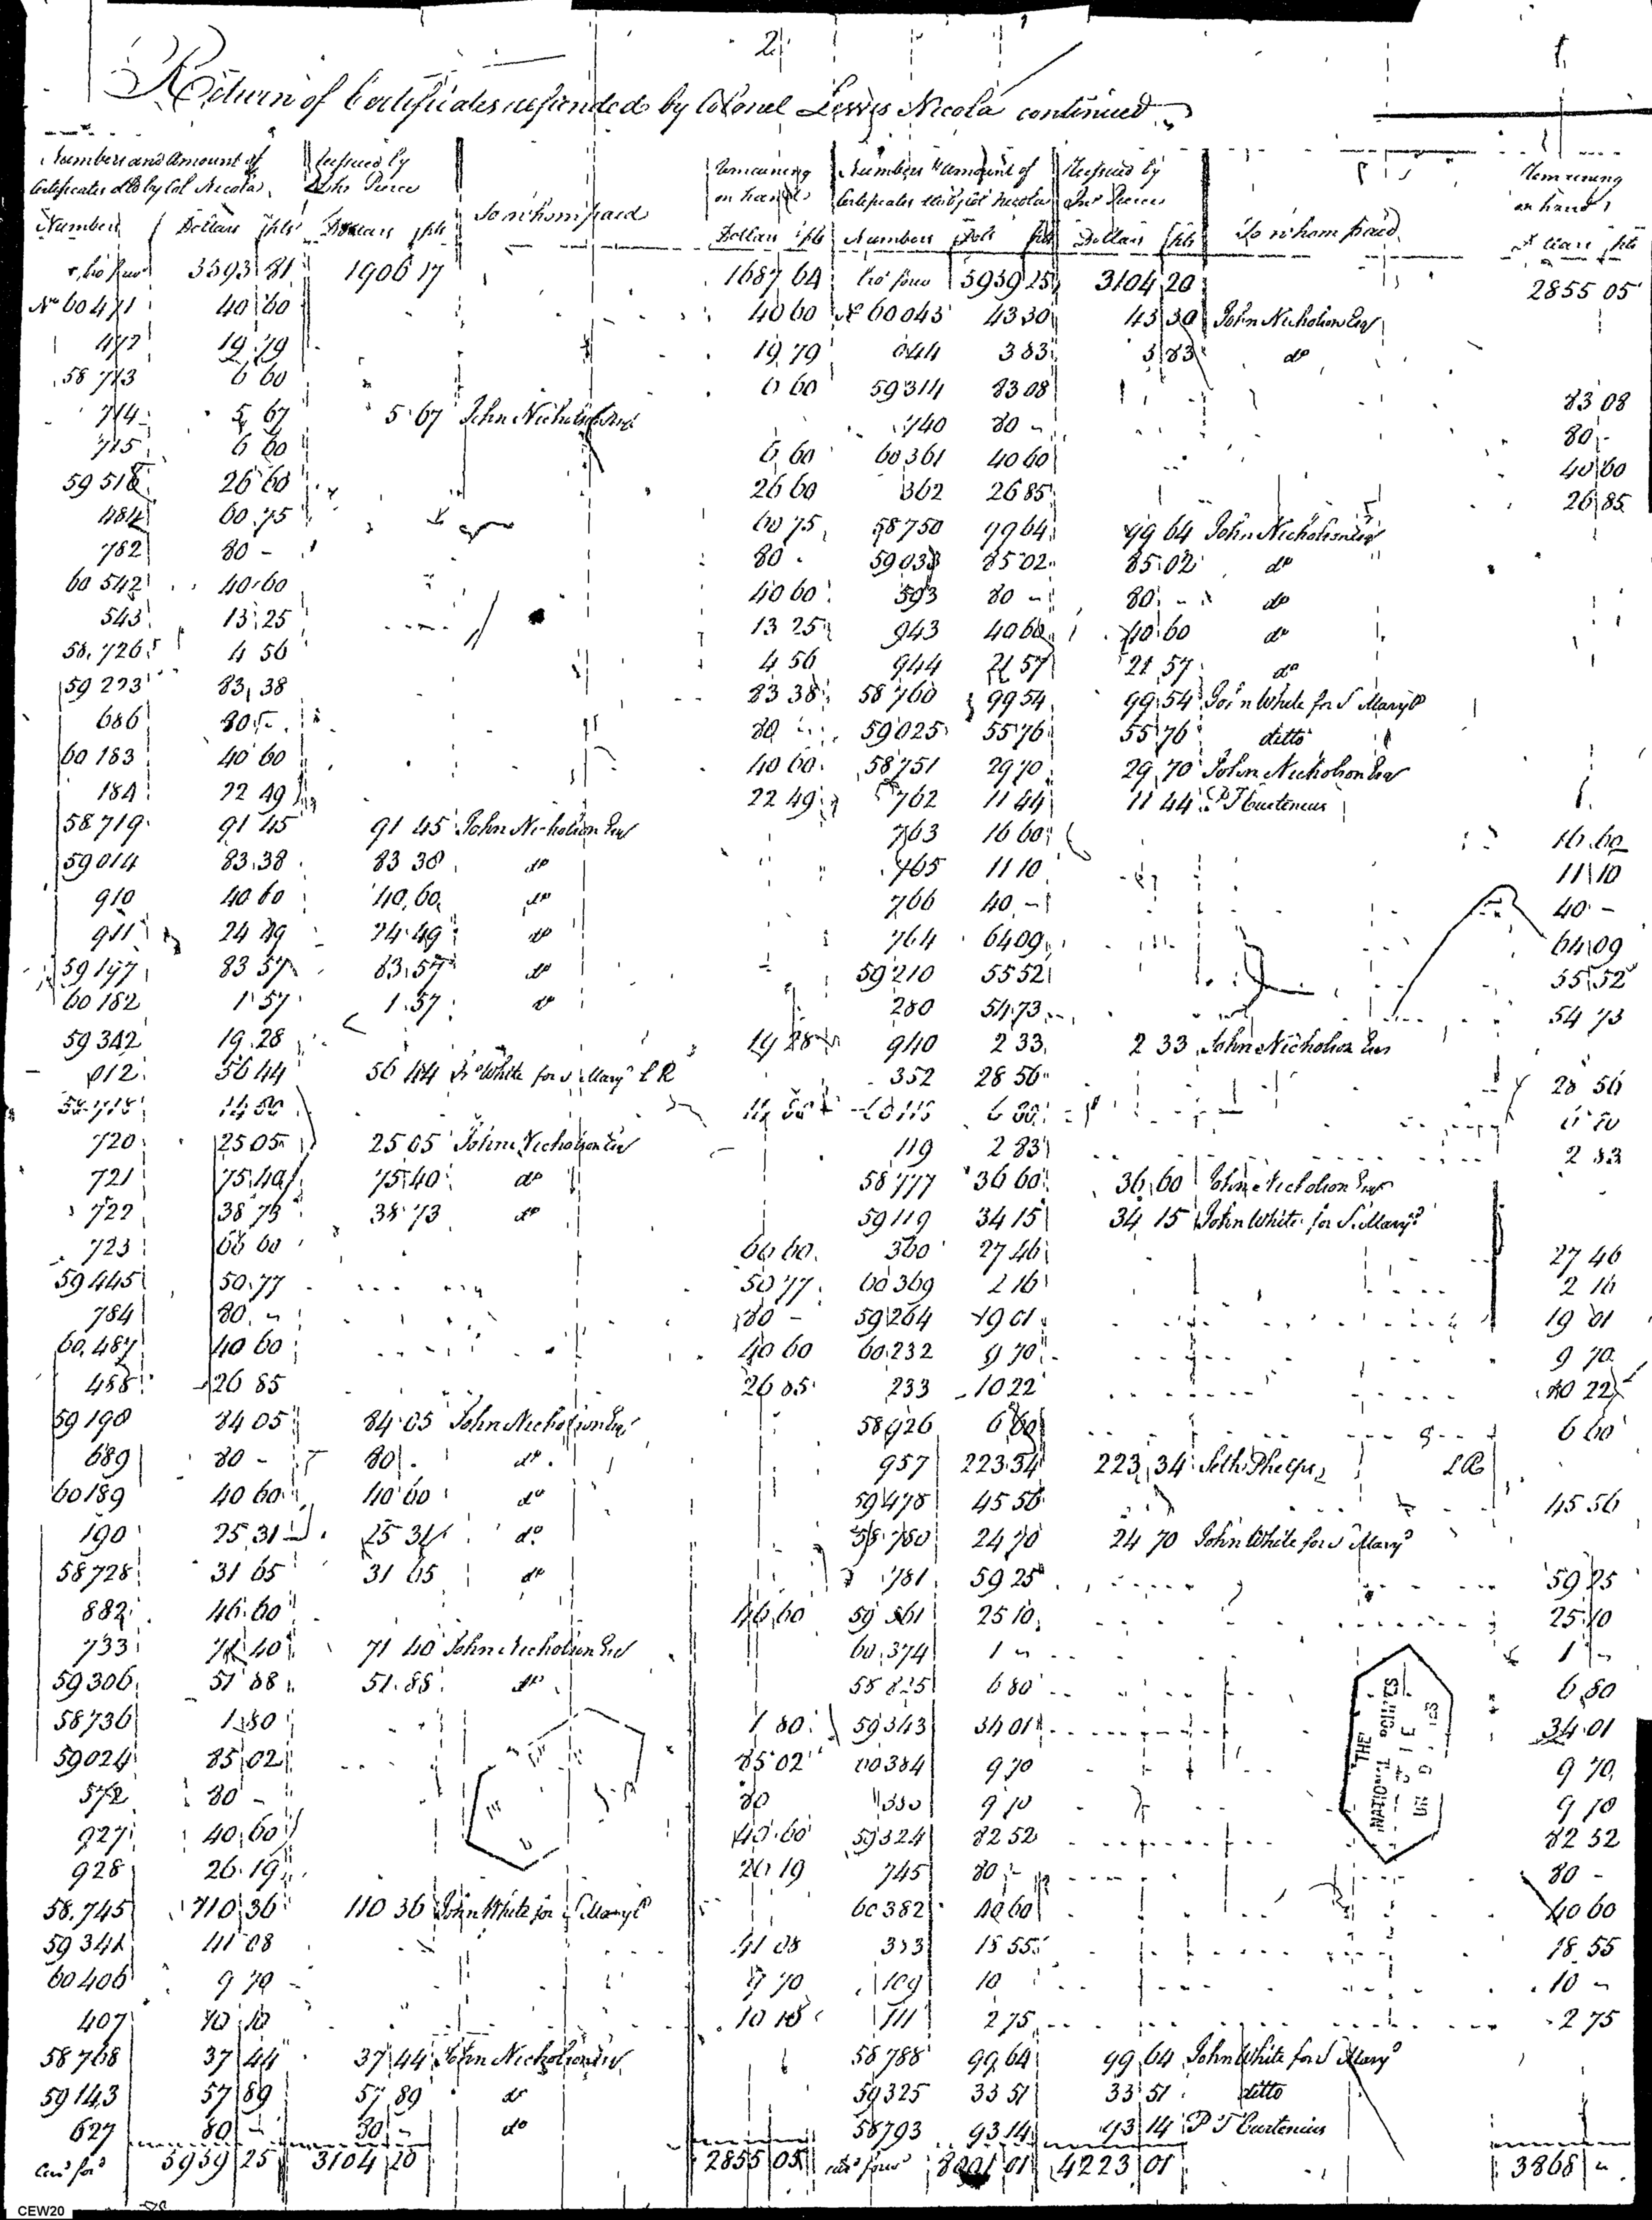 2
Return of Certificates refunded by Colonel Lewis Nicola continued
Numbers and Amount of Certificates dld by Col Nicola
Reissued by Jno Pierce
To whom paid
Remaining on hand
Numbers & Amount of Certificates by Col Nicola
Reissued by Jno Pierce
To whom paid
Remaining on hand
Numbers Dollars pts Dollars pts Dollars pts Numbers Dolls pts Dollars pts pts
5939 25 3104 20 2855 05
No 60471 40 60 40 60 No 60043 43 30 43 30 John Nicholson Esqr
472 19 79 19 79 044 3 83 3 83 do
58 713 6 60 6 60 59314 83 08 83 08
714 5 67 5 67 John Nicholson Esqr 740 80 - 80 -
715 6 60 6 60 60361 40 60 40 60
59 518 26 60 26 60 362 26 85 26 85
484 60 75 60 75 58750 99 64 99 64 John Nicholson Esqr
782 80 - 80 - 59033 85 02 85 02 do
60 542 40 60 40 60 593 80 - 80 - do
543 13 25 13 25 943 40 60 40 60 do
58 726 4 56 4 56 944 21 57 21 57 do
59 293 83 38 83 38 58 760 99 54 99 54 John White for S Maryld
686 80 - 80 - 59025 55 76 55 76 ditto
60 183 40 60 40 60 58751 29 70 29 70 John Nicholson Esqr
184 22 49 22 49 762 11 44 11 44 P T Curtenius
58 719 91 45 91 45 John Nicholson Esqr 763 16 60 16 60
59014 83 38 83 38 do 765 11 10 11 10
910 40 60 40 60 do 766 40 - 40 -
911 24 49 24 49 do 764 64 09 64 09
59197 83 57 83 57 do 59210 55 52 55 52
60 182 1 57 1 57 do 280 54 73 54 73
59 342 19 28 19 28 940 2 33 2 33 John Nicholson Esqr
012 56 44 56 44 Jno White for S Maryd L R 352 28 56 28 56
720 25 05 25 05 John Nicholson Esqr 119 2 83 2 83
721 75 40 75 40 do 58 777 36 60 36 60 John Nicholson Esqr
722 38 73 38 73 do 59119 34 15 34 15 John White for S Maryd
723 66 60 66 60 360 27 46 27 46
59 445 50 77 50 77 60369 2 16 2 16
784 80 - 80 - 59264 19 01 19 01
60 487 40 60 40 60 60 232 9 70 9 70
488 26 85 26 85 233 10 22 10 22
59 190 84 05 84 05 John Nicholson Esqr 58926 6 60 6 60
689 80 - 80 - do 957 223 34 223 34 Seth Phelps L R
60189 40 60 40 60 do 59478 45 56 45 56
190 25 31 25 31 do 58 780 24 70 24 70 John White for S Maryd
58 728 31 65 31 65 do 781 59 25 59 25
882 46 60 46 60 59 361 25 10 25 10
733 71 40 71 40 John Nicholson Esqr 60 374 1 - 1 -
59306 51 88 51 88 do 58 825 6 80 6 80
58736 1 80 1 80 59343 34 01 34 01
59024 85 02 85 02 60384 9 70 9 70
572 80 - 80 9 70 9 70
927 40 60 40 60 59324 82 52 82 52
928 26 19 26 19 745 80 - 80 -
58 745 110 36 110 36 John White for S Maryld 60382 40 60 40 60
59 341 41 08 41 08 383 18 55 18 55
60406 9 70 9 70 109 10 10 -
407 10 10 10 10 111 2 75 2 75
58 768 37 44 37 44 John Nicholson Esqr 58 788 99 64 99 64 John White for S Maryd
59143 57 89 57 89 do 59325 33 51 33 51 ditto
627 80 - 80 - do 58793 93 14 93 14 P T Curtenius
5939 25 3104 20 2855 05 8091 01 4223 01 3868 -
THE
NATIONAL
CEW20